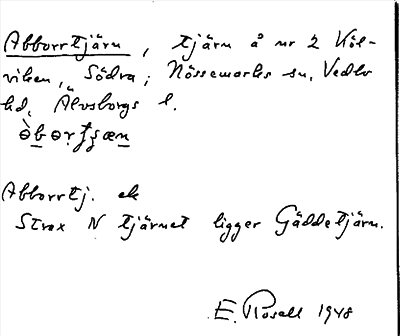 Abborrtjärn, tjärn å nr 2 Köl-
viken, Södra; Nössemarks sn, Vedbo
hd, Älvsborgs l.

Abborrtj. ek
Strax N tjärnet ligger Gäddetjärn.
E. Rosell 1948